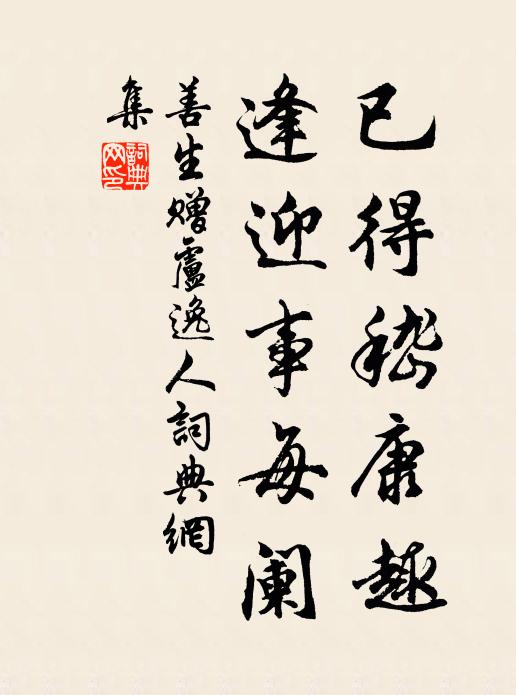 已得嵇康趣
逢迎事每阑
善生赠盧逸人詞典網
集
詞典
网印